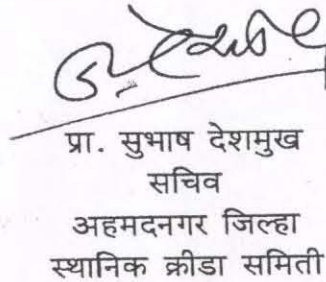 प्रा. सुभाष देशमुख
सचिव
अहमदनगर जिल्हा
स्थानिक क्रीडा समिती